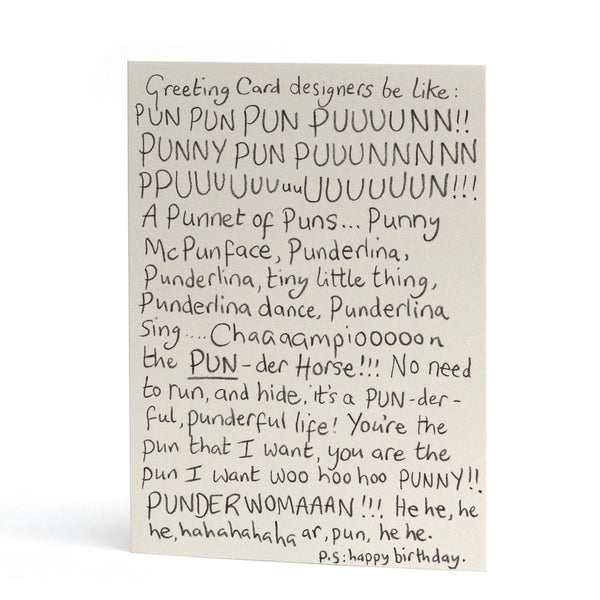 Greeting Card designers be like:
PUN PUN PUN PUUUUNN!!
PUNNY PUN PUUUNNNNN
PPUUUUUUUuuUUUUUUUN!!!
A Punnet of Puns... Punny
McPunface, Punderlina,
Punderlina, tiny little thing,
Punderlina dance, Punderlina
sing.... Chaaaampiooooon
the PUN-der Horse!!! No need
to run, and hide, it's a PUN-der-
ful, punderful life! You're the
pun that I want, you are the
pun I want woo hoo hoo PUNNY!!
PUNDERWOMAAAN!!! He he, he
he, hahahahaha ar, pun, he he.
P.S: happy birthday.